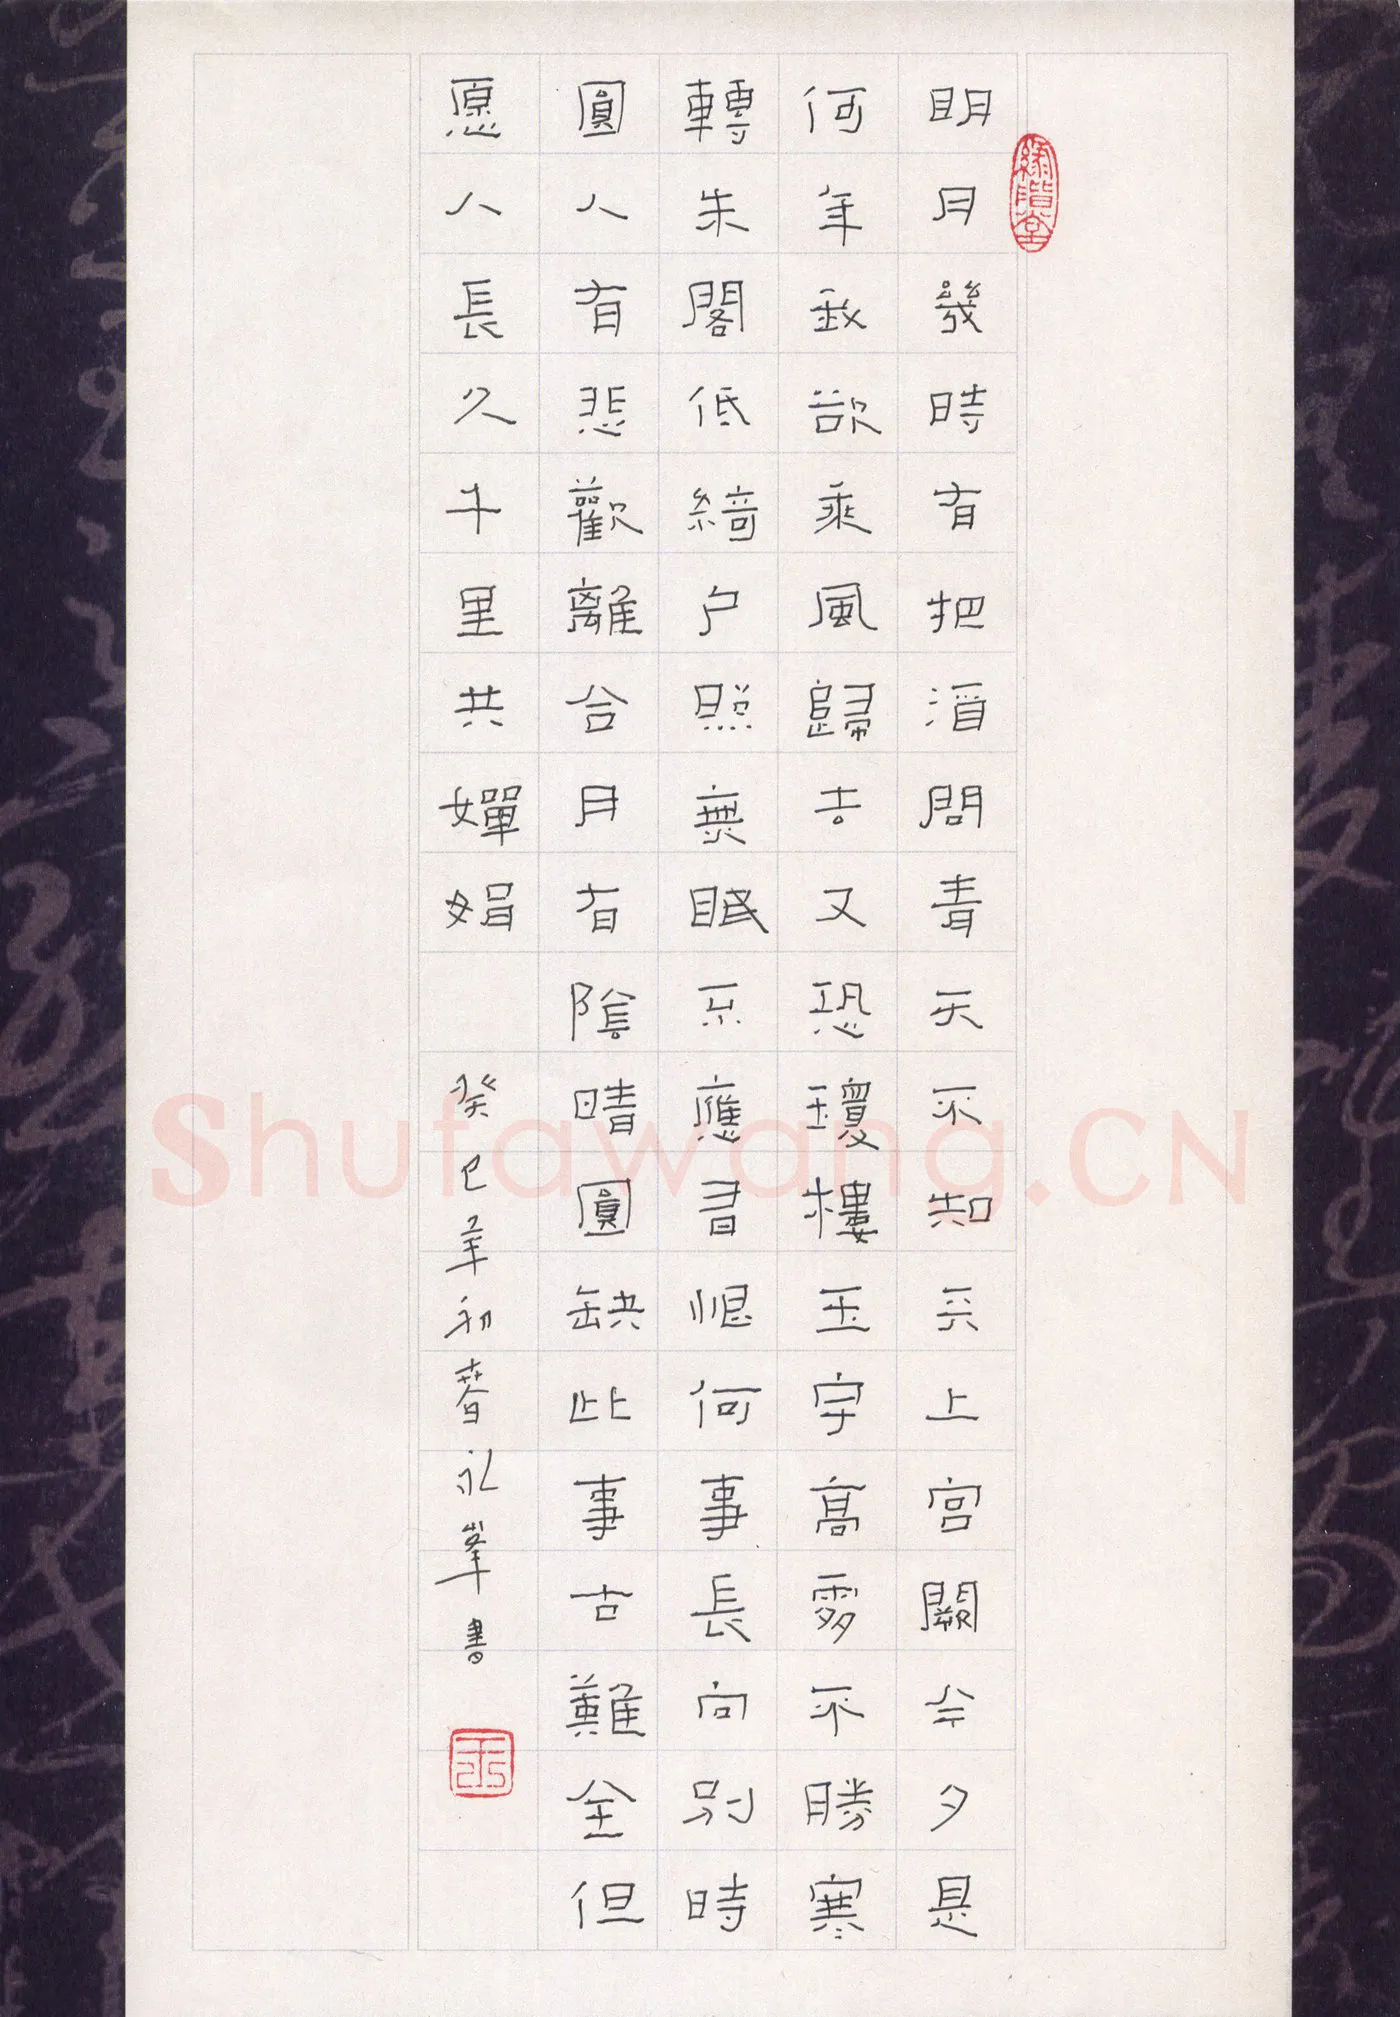 明月幾時有把酒問青天不知天上宮闕今夕是
何年我欲乘風歸去又恐瓊樓玉宇高處不勝寒
轉朱閣低綺戶照無眠不應有恨何事長向別時
圓人有悲歡離合月有陰晴圓缺此事古難全但
愿人長久千里共嬋娟
癸巳年初春永峯書
Shufawang.CN